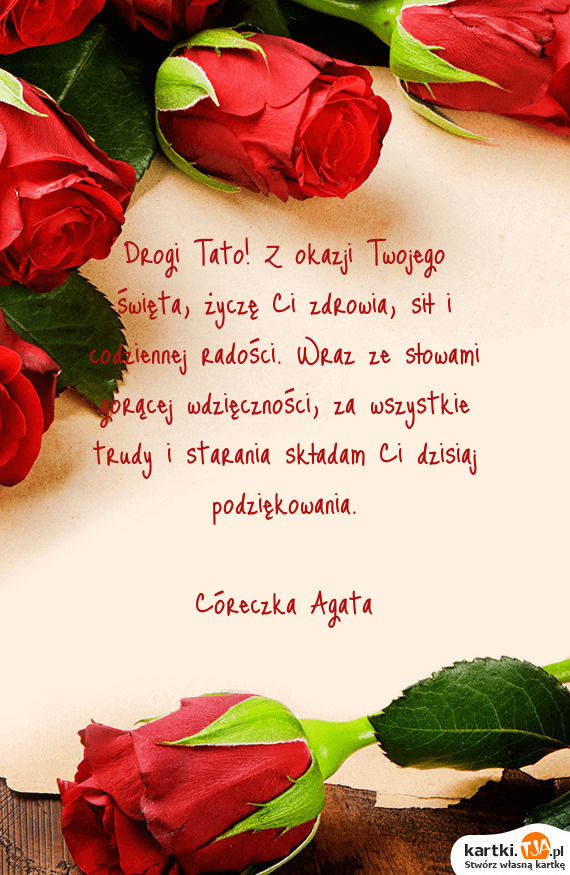 Drogi Tato! Z okazji Twojego
święta, życzę Ci zdrowia, sił i
codziennej radości. Wraz ze słowami
gorącej wdzięczności, za wszystkie
trudy i starania składam Ci dzisiaj
podziękowania.
Córeczka Agata
kartki.TJA.pl
Stwórz własną kartkę